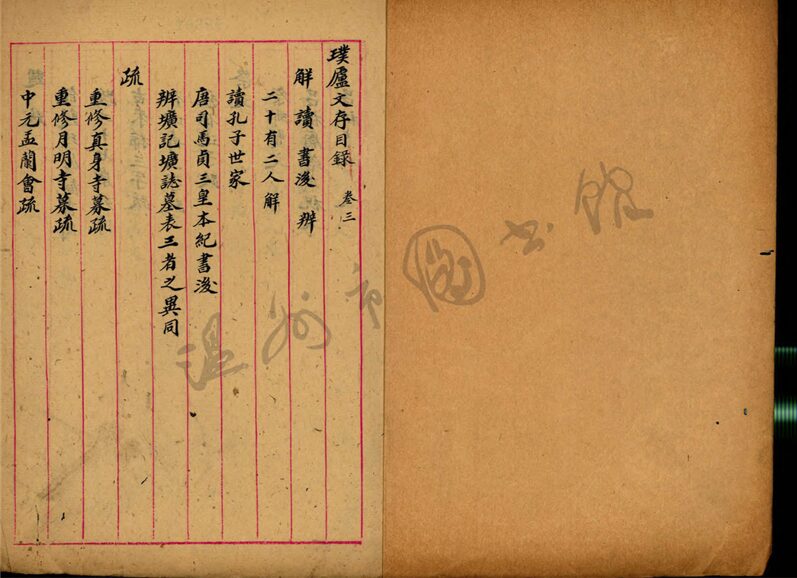 璞廬文存目錄 卷三
解 讀 書後 辨
二十有二人解
讀孔子世家
唐司馬貞三皇本紀書後
辨壙記壙誌墓表三者之異同
疏
重修真身寺募疏
重修月明寺募疏
中元盂蘭會疏
温州市圖书館